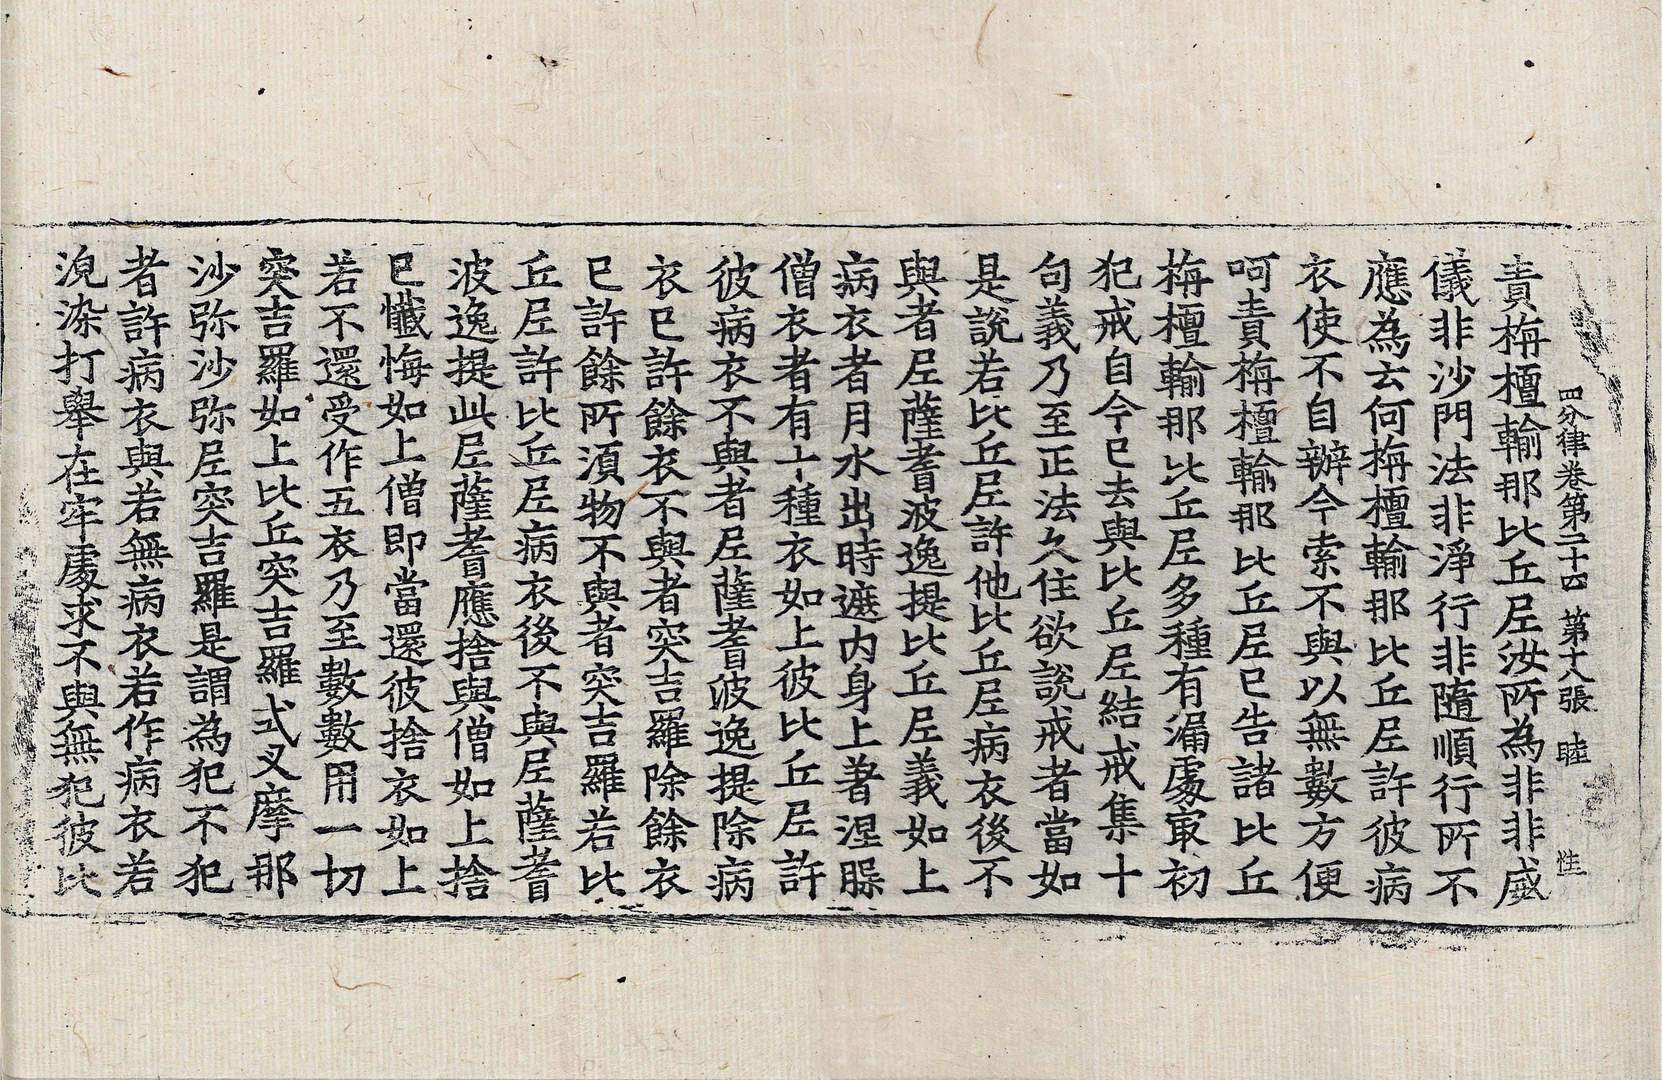 四分律卷第二十四 第十八張 睦 性
責栴檀輸那比丘尼汝所為非非威
儀非沙門法非淨行非隨順行所不
應為云何栴檀輸那比丘尼許彼病
衣使不自辦今索不與以無數方便
呵責栴檀輸那比丘尼已告諸比丘
栴檀輸那比丘尼多種有漏處㝡初
犯戒自今已去與比丘尼結戒集十
句義乃至正法久住欲說戒者當如
是說若比丘尼許他比丘尼病衣後不
與者尼薩耆波逸提比丘尼義如上
病衣者月水出時遮內身上著涅䐿
僧衣者有十種衣如上彼比丘尼許
彼病衣不與者尼薩耆波逸提除病
衣已許餘衣不與者突吉羅除餘衣
已許餘所湏物不與者突吉羅若比
丘尼許比丘尼病衣後不與尼薩耆
波逸提此尼薩耆應捨與僧如上捨
已懺悔如上僧即當還彼捨衣如上
若不還受作五衣乃至數數用一切
突吉羅如上比丘突吉羅式叉摩那
沙弥沙弥尼突吉羅是謂為犯不犯
者許病衣與若無病衣若作病衣若
浣染打舉在牢處求不與無犯彼比